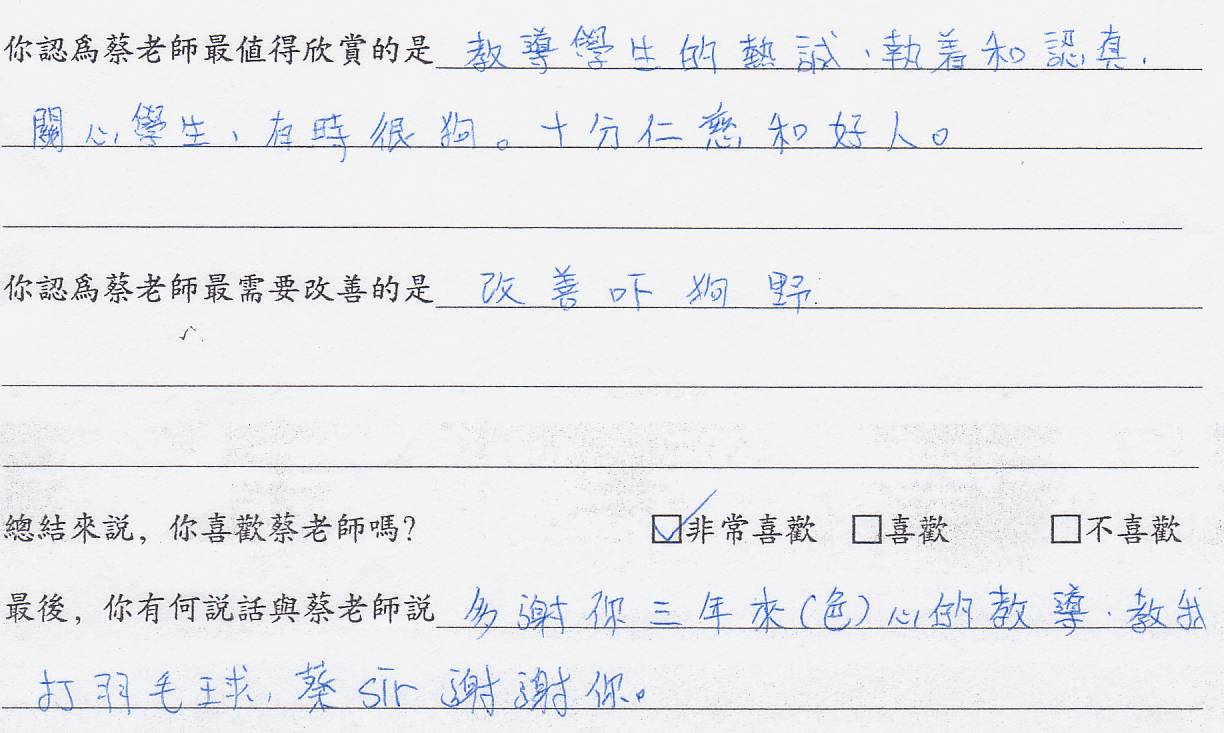 你認爲蔡老師最值得欣賞的是 教導學生的熱誠、執着和認真,
關心學生、有時很狗。十分仁慈和好人。
你認爲蔡老師最需要改善的是 改善吓狗野.
總結來說，你喜歡蔡老師嗎？ ☑非常喜歡 □喜歡 □不喜歡
最後，你有何說話與蔡老師說 多謝你三年來(色)心的教導.教我
打羽毛球,蔡sir謝謝你。